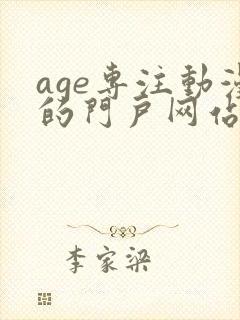 age専注動漫
的門户网站
李家梁